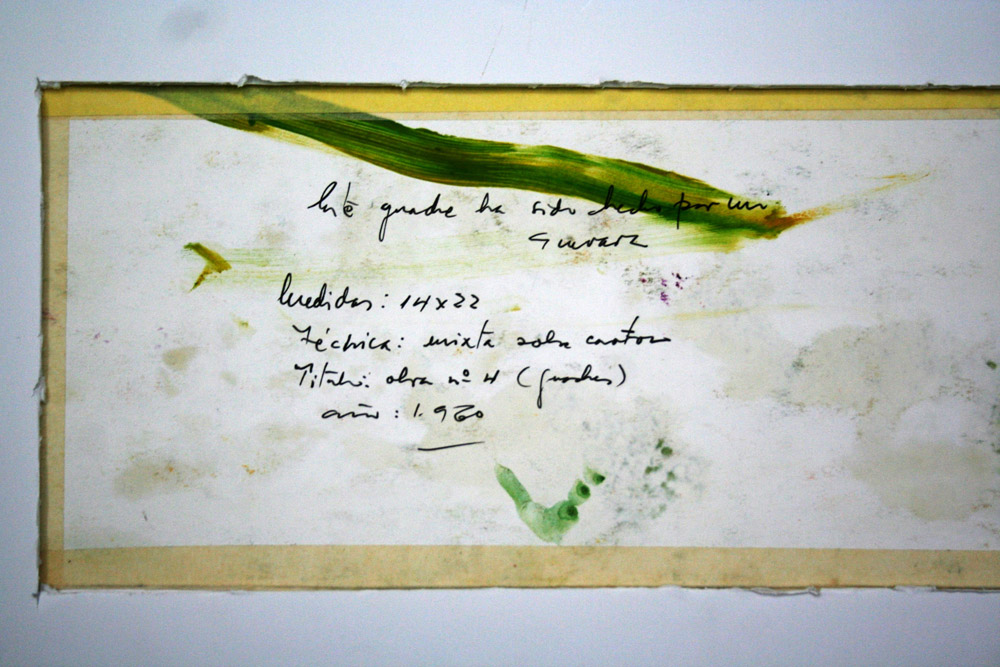 Este guache ha sido hecho por mi
Guevara
Medidas: 14x22
Técnica: mixta sobre carton
Titulo: obra nº 4 (guaches)
año: 1.960